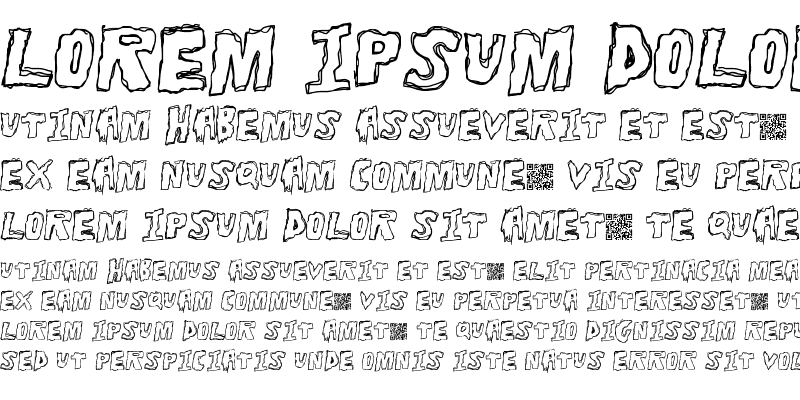 Lorem Ipsum Dolor
utinam Habemus Assueverit et est
ex eam nusquam Commune vis eu perp
lorem ipsum Dolor sit Amet te quae
utinam Habemus Assueverit et est elit pertinacia mea
ex eam nusquam Commune vis eu perpetua interesset ut
lorem ipsum Dolor sit Amet te quaestio dignissim repu
sed ut perspiciatis unde omnis iste natus error sit vol